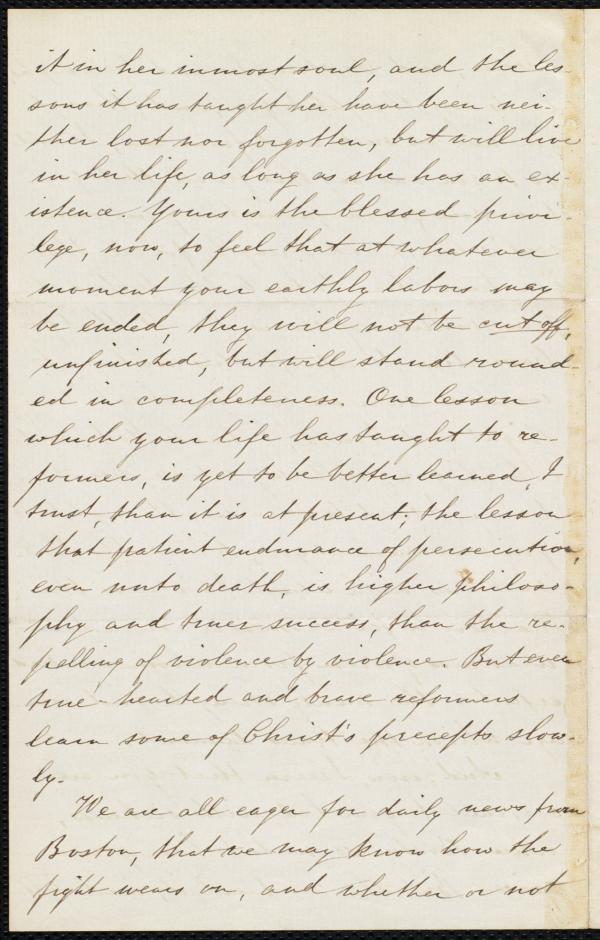 it in her inmost soul, and the les-
sons it has taught her have been nei-
ther lost nor forgotten, but will live
in her life, as long as she has an ex-
istence. Yours is the blessed privi-
lege, now, to feel that at whatever
moment your earthly labors may
be ended, they will not be cut off,
unfinished, but will stand round-
ed in completeness. One lesson
which your life has taught to re-
formers, is yet to be better learned, I
trust, than it is at present; the lesson
that patient endurance of persecution,
even unto death, is higher philoso-
phy and truer success, than the re-
pelling of violence by violence. But even
true-hearted and brave reformers
learn some of Christ's precepts slow-
ly.
We are all eager for daily news from
Boston, that we may know how the
fight wears on, and whether or not